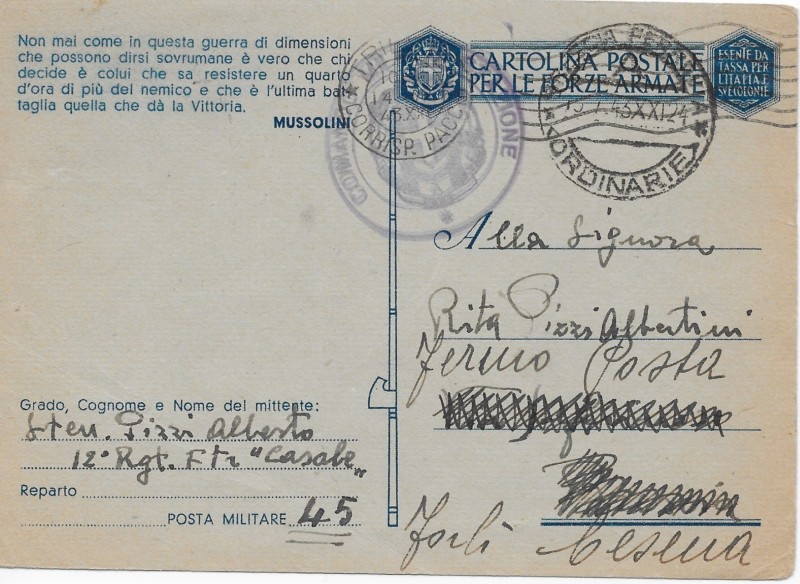 Non mai come in questa guerra di dimensioni
che possono dirsi sovrumane è vero che chi
decide è colui che sa resistere un quarto
d'ora di più del nemico e che è l'ultima bat
taglia quella che dà la Vittoria.
MUSSOLINI
CARTOLINA POSTALE
PER LE FORZE ARMATE
ESENTE DA
TASSA PER
L'ITALIA E
SVE COLONIE
CORRISP. PACC
ORDINARIE
Alla Signora
Rita Pizzi Albertini
Fermo Posta
Forlì Cesena
Grado, Cognome e Nome del mittente:
Sten. Pizzi Alberto
12° Rgt. Ftr "Casale"
Reparto
POSTA MILITARE 45